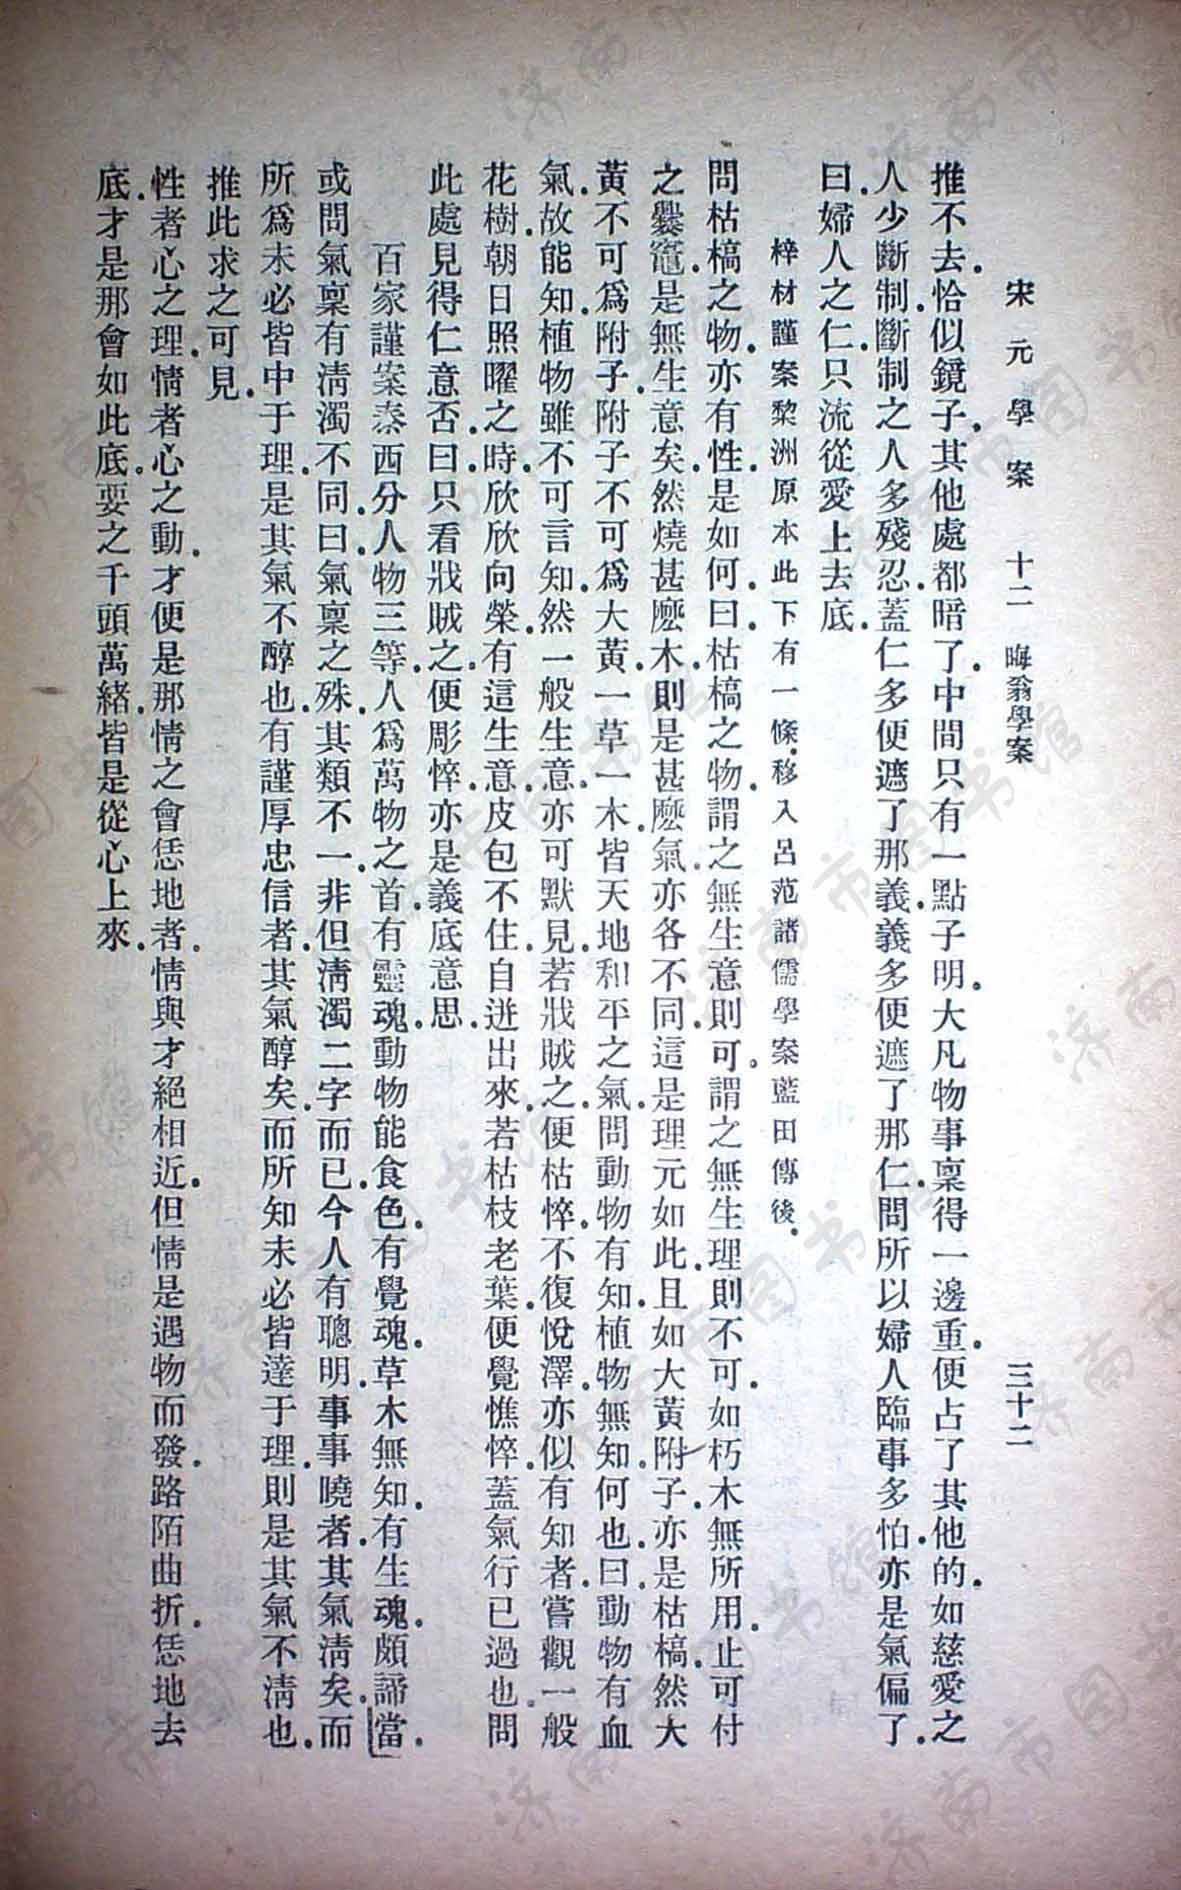 宋元學案　十二　晦翁學案　三十二
推不去.恰似鏡子.其他處都暗了.中間只有一點子明.大凡物事稟得一邊重.便占了其他的.如慈愛之
人少斷制.斷制之人多殘忍.蓋仁多便遮了那義.義多便遮了那仁.問所以婦人臨事多怕.亦是氣偏了.
曰.婦人之仁.只流從愛上去底.
梓材謹案黎洲原本此下有一條.移入呂范諸儒學案藍田傳後.
問枯槁之物.亦有性.是如何.曰.枯槁之物.謂之無生意則可.謂之無生理則不可.如朽木無所用.止可付
之爨竈.是無生意矣.然燒甚麽木.則是甚麽氣.亦各不同.這是理元如此.且如大黃附子.亦是枯槁.然大
黃不可爲附子.附子不可爲大黃.一草一木.皆天地和平之氣.問動物有知.植物無知.何也.曰.動物有血
氣.故能知.植物雖不可言知.然一般生意.亦可默見.若戕賊之.便枯悴.不復悅澤.亦似有知者.嘗觀一般
花樹.朝日照曜之時.欣欣向榮.有這生意.皮包不住.自迸出來.若枯枝老葉.便覺憔悴.蓋氣行已過也.問
此處見得仁意否.曰.只看戕賊之.便彫悴.亦是義底意思.
百家謹案泰西分人物三等.人爲萬物之首.有靈魂.動物能食色.有覺魂.草木無知.有生魂.頗諦當.
或問氣稟有淸濁不同.曰.氣稟之殊.其類不一.非但淸濁二字而已.今人有聰明.事事曉者.其氣淸矣.而
所爲未必皆中于理.是其氣不醇也.有謹厚忠信者.其氣醇矣.而所知未必皆達于理.則是其氣不淸也.
推此求之可見.
性者心之理.情者心之動.才便是那情之會恁地者.情與才絕相近.但情是遇物而發.路陌曲折.恁地去
底.才是那會如此底.要之千頭萬緒.皆是從心上來.
济南市图书馆